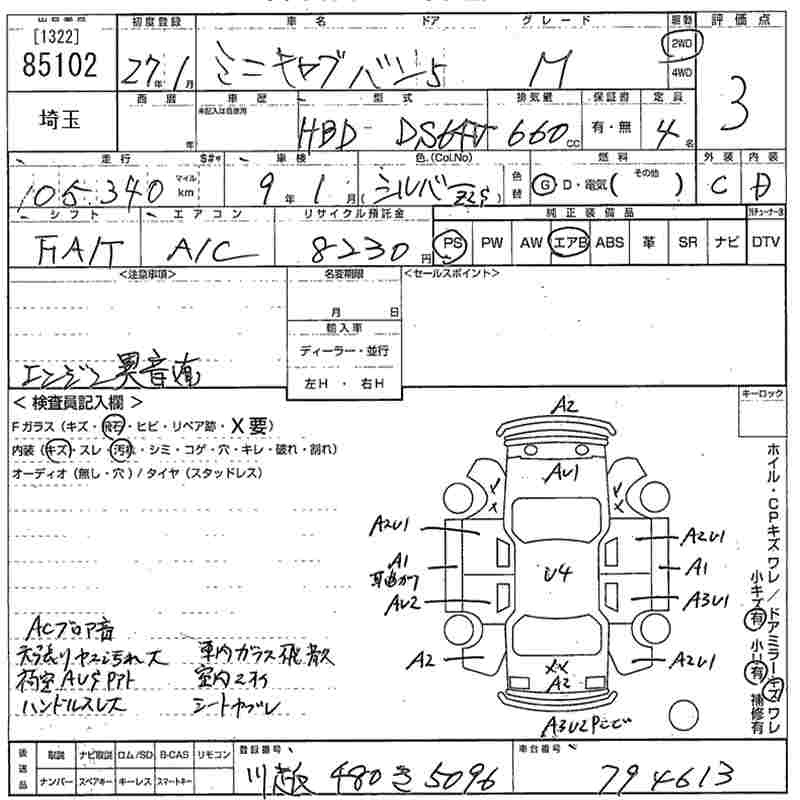 [1322]
85102
埼玉
初度登録 車名 ドア グレード 駆動 評価点
27年1月 ミニキャブバン 5 M 2WD 4WD 3
西暦 車歴 型式 排気量 保証書 定員
年 未記入は自家用 HBD-DS64V 660cc 有・無 4名
走行 車検 色.(Col.No) 色替 燃料 外装 内装
105,340 マイル km 9年1月 (シルバーZ2S) G D・電気( その他 ) C D
シフト エアコン リサイクル預託金 純正装備品
FAT A/C 8230円 PS PW AW エアB ABS 革 SR ナビ DTV
<注意事項> 名変期限 <セールスポイント>
月 日
輸入車
ディーラー・並行
左H・右H
エンジン異音有
<検査員記入欄> キーロック
Fガラス(キズ・飛石・ヒビ・リペア跡・X要)
内装(キズ・スレ・汚れ・シミ・コゲ・穴・キレ・破れ・割れ)
オーディオ(無し・穴)/タイヤ(スタッドレス)
A2
AU1
A2U1 A2U1
A1 A1
U4
AU2 A3U1
A2 A2U1
XX
A2
A3U2
ホイル・CPキズ ワレ/ドアミラーキズ ワレ
小キズ有 小U有 補修有
ACブロア音
汚れ大 車内ガラス飛散
ハンドルスレ大 シートヤブレ
後送品 取説 ナビ取説 ロム/SD B-CAS リモコン 登録番号 車台番号
ナンバー スペアキー キーレス スマートキー 川越 480 き 5096 794613